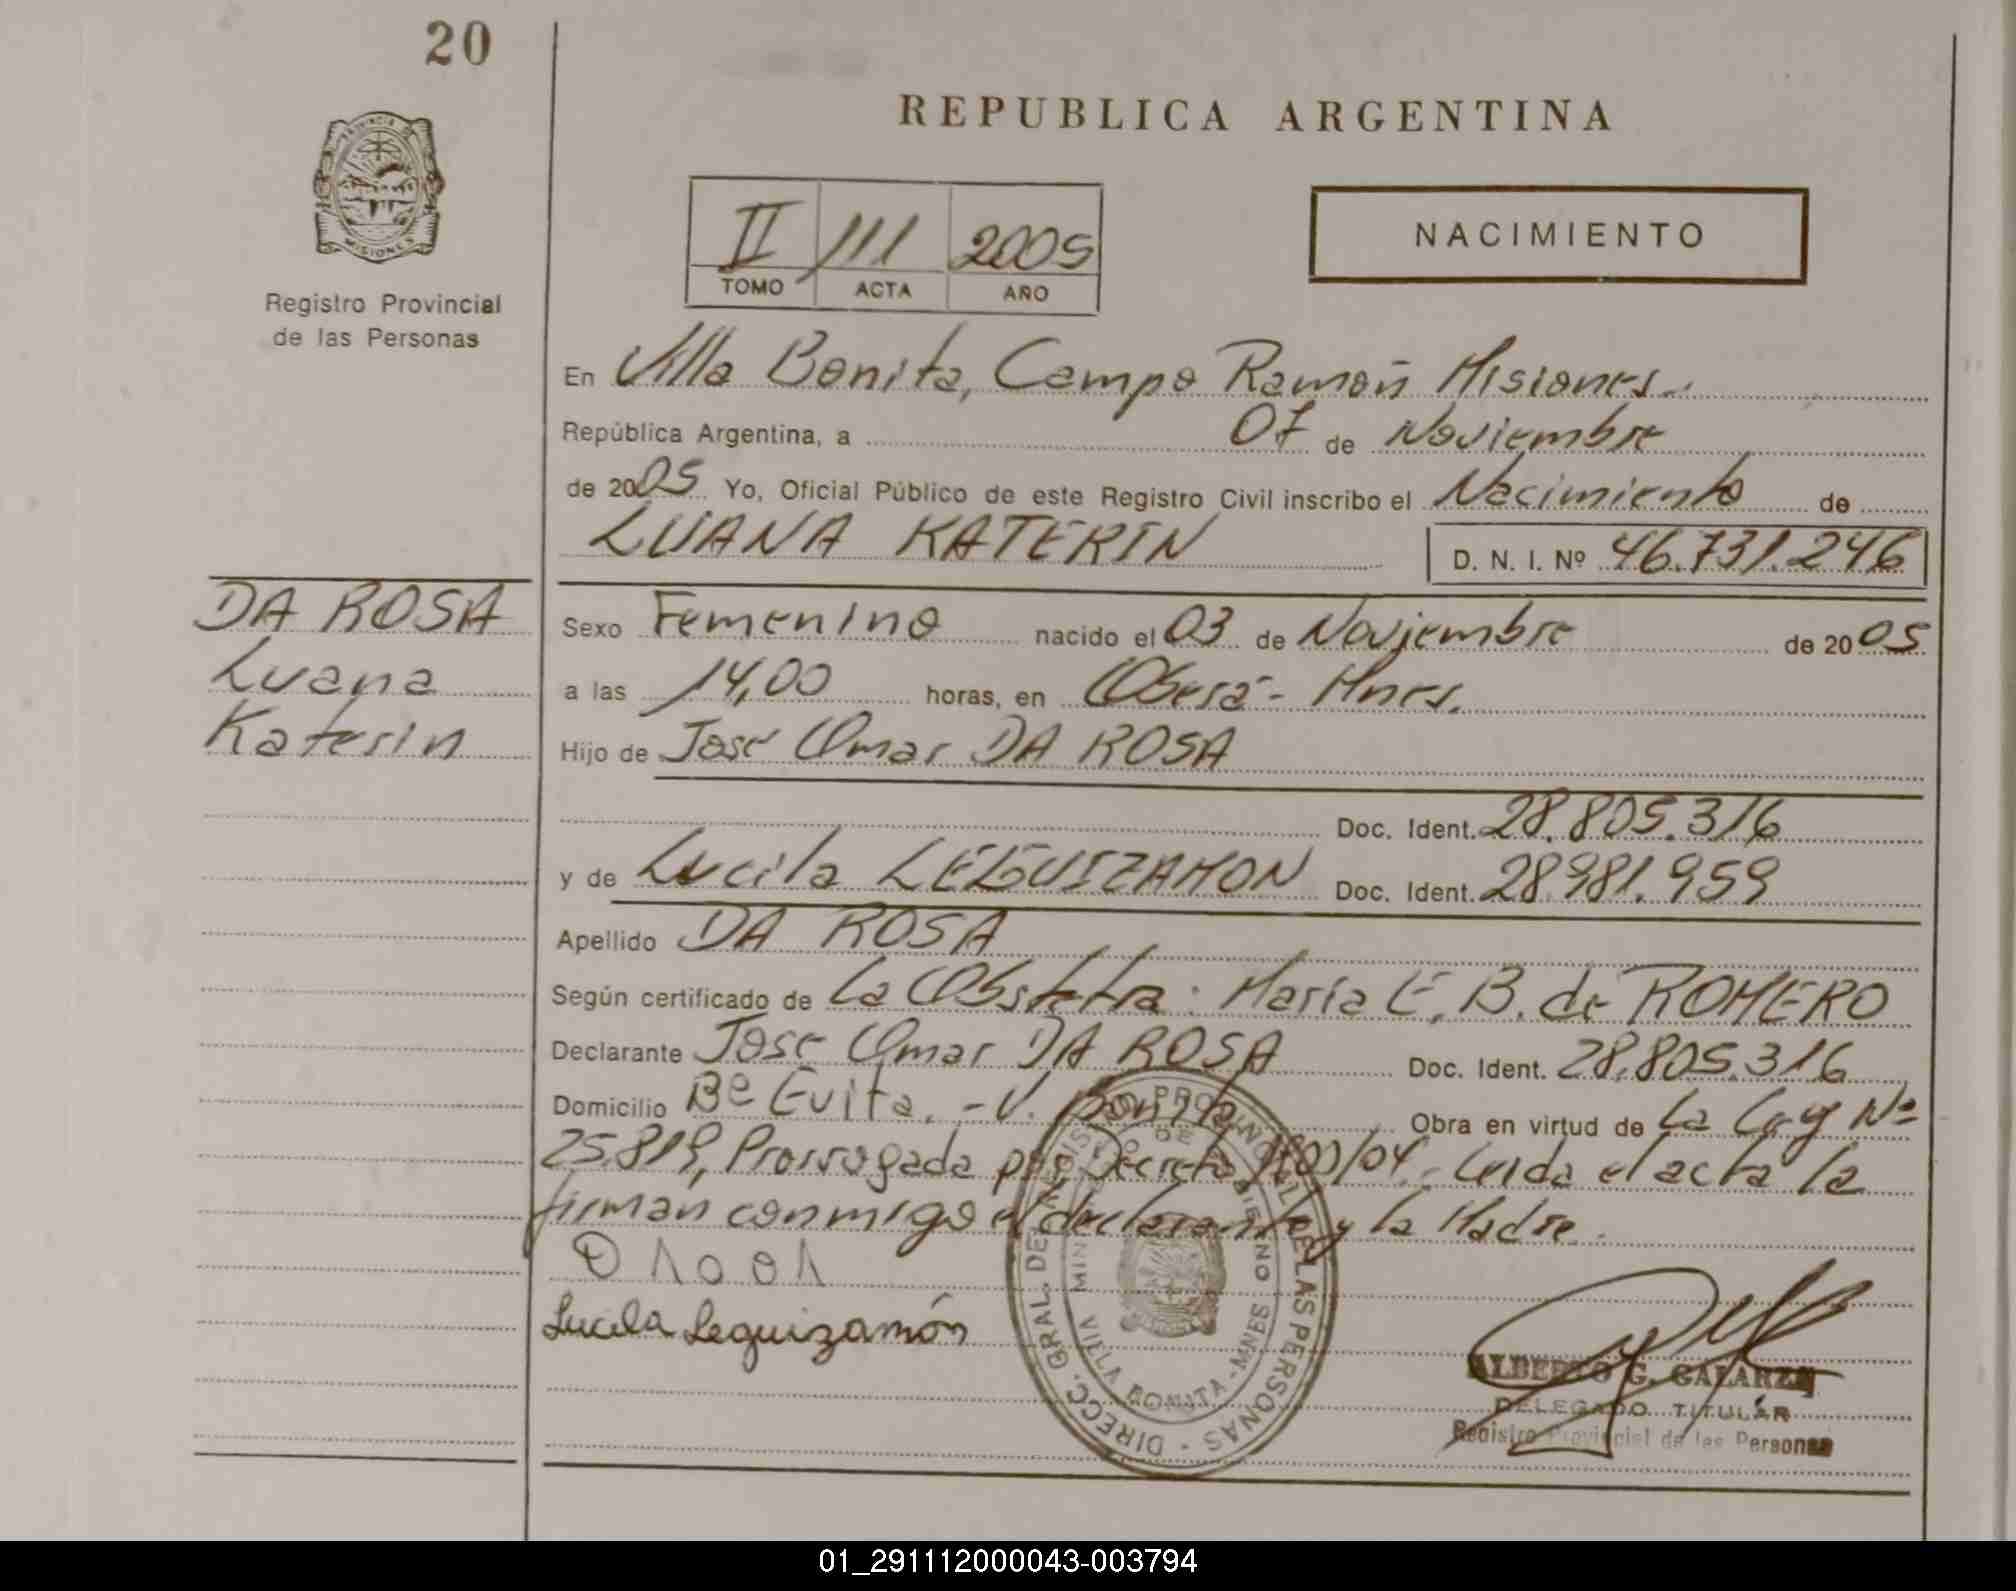 20
REPUBLICA ARGENTINA
PROVINCIA DE
MISIONES
Registro Provincial
de las Personas
II 111 2005
TOMO ACTA AÑO
NACIMIENTO
En Villa Bonita, Campo Ramón Misiones.
República Argentina, a 07 de Noviembre
de 2005 Yo, Oficial Público de este Registro Civil inscribo el Nacimiento de
LUANA KATERIN
D. N. I. Nº 46.731.246
DA ROSA
Luana
Katerin
Sexo Femenino nacido el 03 de Noviembre de 2005
a las 14,00 horas, en Oberá - Mnes.
Hijo de José Omar DA ROSA
Doc. Ident. 28.805.316
y de Lucila LEGUIZAMON Doc. Ident. 28.981.959
Apellido DA ROSA
Según certificado de La Obstetra: Maria E. B. de ROMERO
Declarante José Omar DA ROSA Doc. Ident. 28.805.316
Domicilio Bº Evita. - V. Bonita Obra en virtud de La Ley Nº
25.819, Prorrogada por Decreto /04. Leida el acta la
firman conmigo el declarante y la Madre.
Lucila Leguizamón
DIRECC. GRAL. DEL REGISTRO PROVINCIAL DE LAS PERSONAS
MINISTERIO DE GOBIERNO
VILLA BONITA - MNES
ALBERTO G. GALARZA
DELEGADO TITULAR
Registro Provincial de las Personas
01_291112000043-003794